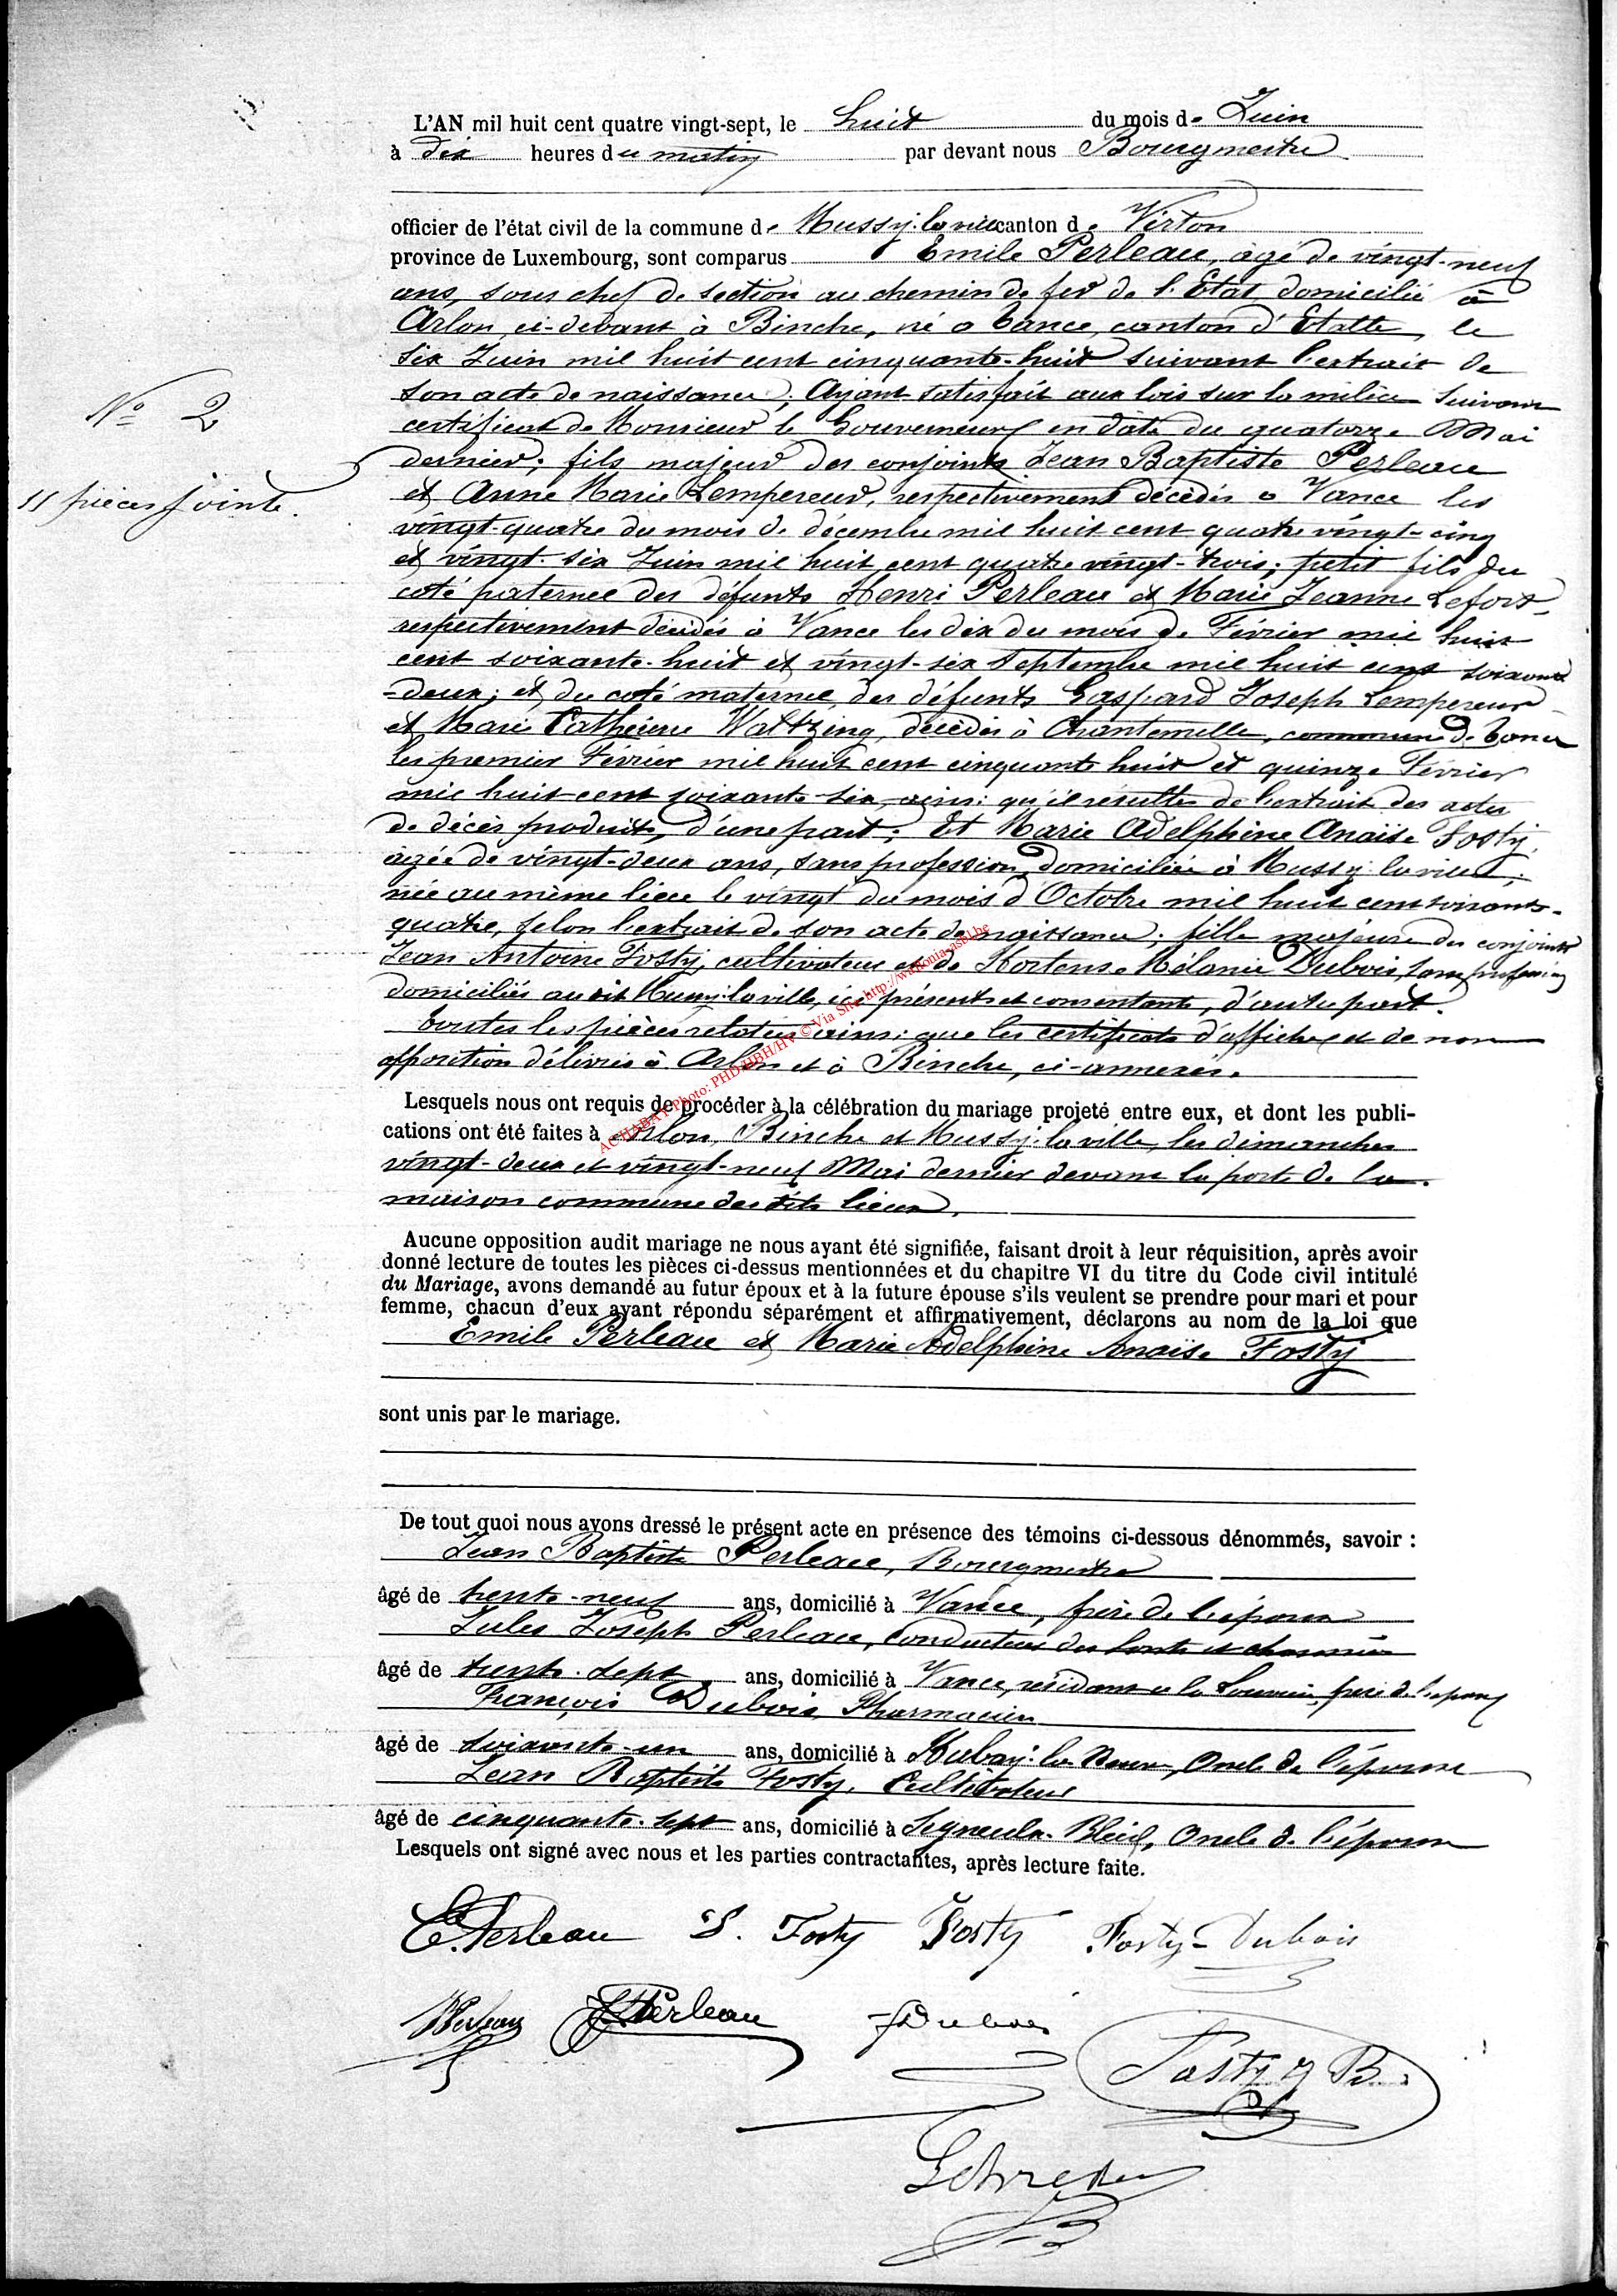 L'AN mil huit cent quatre vingt-sept, le huit du mois de Juin
à dix heures du matin par devant nous Bourgmestre
officier de l'état civil de la commune de Mussy-la-ville canton de Virton
province de Luxembourg, sont comparus Emile Perleau, agé de vingt-neuf
ans, sous chef de section au chemin de fer de l'Etat domicilié à
Arlon, ci-devant à Binche, né a Vance, canton d'Etalle, le
six Juin mil huit cent cinquante-huit suivant l'extrait de
son acte de naissance; Ayant satisfait aux lois sur la milice suivant
certificat de Monsieur le Gouverneur en date du quatorze Mai
N° 2
dernier; fils majeur des conjoints Jean Baptiste Perleau
11 pièces jointe.
et Anne Marie Lempereur, respectivement décédés a Vance les
vingt-quatre du mois de décembre mil huit cent quatre vingt-cinq
et vingt-six Juin mil huit cent quatre vingt-trois; petit fils du
coté paternel des défunts Henri Perleau et Marie Jeanne Lefort
respectivement décédés à Vance les dix du mois de Février mil huit
cent soixante-huit et vingt-six Septembre mil huit cent soixante
-deux; et du coté maternel des défunts Gaspard Joseph Lempereur
et Marie Catherine Waltzing, décédés à Chantemelle, commune de Vance
les premier Février mil huit cent cinquante huit et quinze Février
mil huit cent soixante six, ainsi qu'il résulte de l'extrait des actes
de décès produits, d'une part; Et Marie Adelphine Anaïse Fosty,
agée de vingt-deux ans, sans profession, domiciliée à Mussy-la-ville;
née au même lieu le vingt du mois d'Octobre mil huit cent soixante-
quatre, selon l'extrait de son acte de naissance; fille majeure des conjoints
Jean Antoine Fosty, cultivateur et de Hortense Mélanie Dubois, sans profession
domiciliés au dit Mussy-la-ville, ici présents et consentants, d'autre part.
Toutes les pièces relatées ainsi que les certificats d'affiche et de non
opposition délivrés à Arlon et à Binche, ci-annexés.
AC HABAY Photo: PHD/HBH/HV © Via Site http://wallonia-asbl.be
Lesquels nous ont requis de procéder à la célébration du mariage projeté entre eux, et dont les publi-
cations ont été faites à Arlon, Binche et Mussy-la-ville, les dimanches
vingt-deux et vingt-neuf Mai dernier devant la porte de la
maison commune des dits lieux.
Aucune opposition audit mariage ne nous ayant été signifiée, faisant droit à leur réquisition, après avoir
donné lecture de toutes les pièces ci-dessus mentionnées et du chapitre VI du titre du Code civil intitulé
du Mariage, avons demandé au futur époux et à la future épouse s'ils veulent se prendre pour mari et pour
femme, chacun d'eux ayant répondu séparément et affirmativement, déclarons au nom de la loi que
Emile Perleau et Marie Adelphine Anaïse Fosty
sont unis par le mariage.
De tout quoi nous avons dressé le présent acte en présence des témoins ci-dessous dénommés, savoir :
Jean Baptiste Perleau, Bourgmestre
âgé de trente-neuf ans, domicilié à Vance, frère de l'époux
Jules Joseph Perleau, conducteur des Ponts et chaussées
âgé de trente-sept ans, domicilié à Vance, résidant a la Louvière, frère de l'époux
François Dubois, Pharmacien
âgé de soixante-un ans, domicilié à Habay-la-Neuve, Oncle de l'épouse
Jean Baptiste Fosty, Cultivateur
âgé de cinquante-sept ans, domicilié à Signeulx-Bleid, Oncle de l'épouse
Lesquels ont signé avec nous et les parties contractantes, après lecture faite.
E. Perleau S. Fosty Fosty Fosty-Dubois
Perleau JJPerleau fDubois
Fosty J B